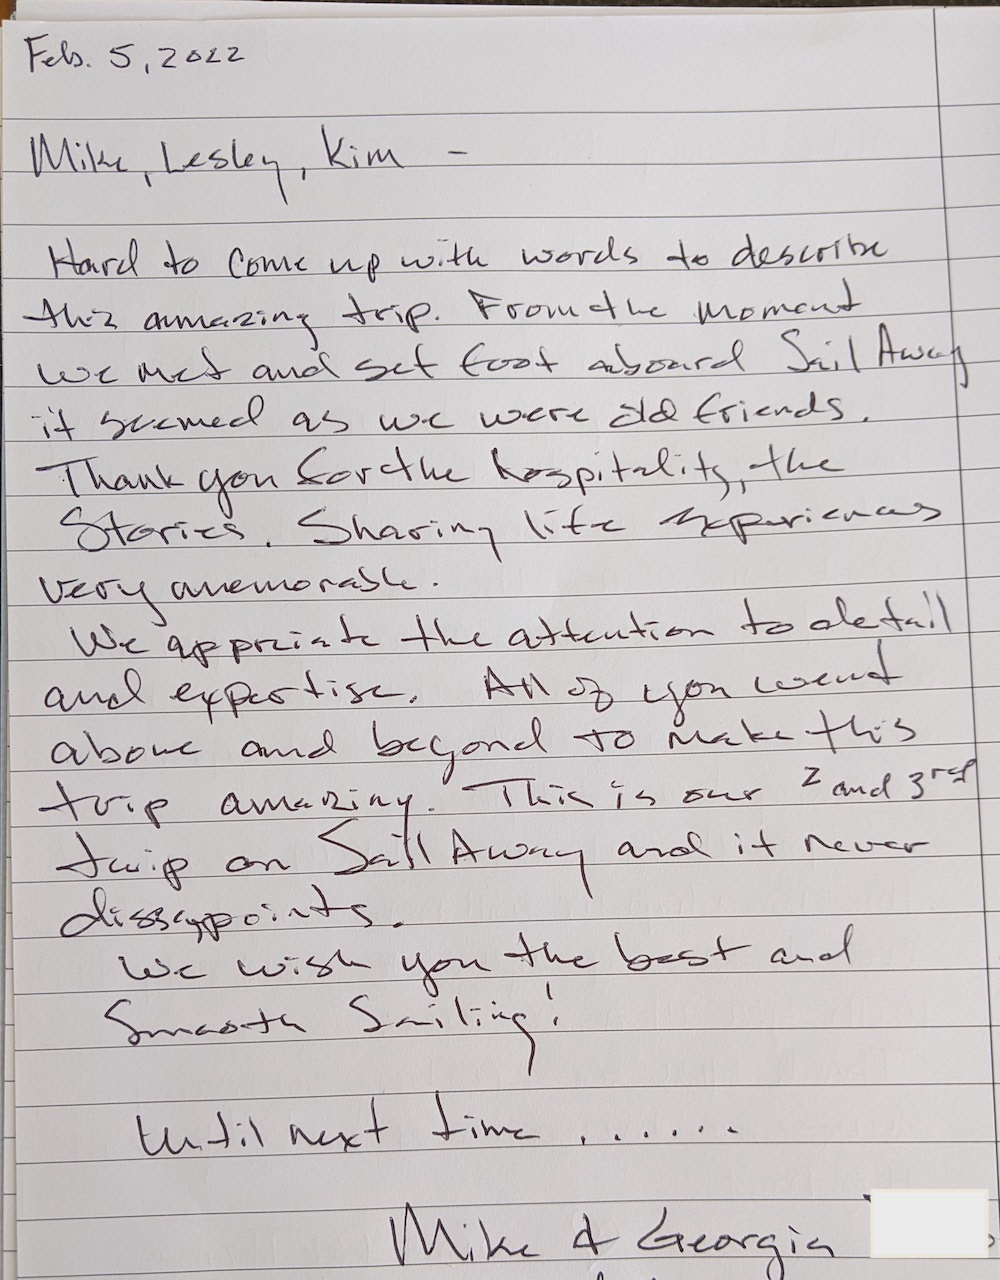 Feb. 5, 2022
Mike, Lesley, Kim -
Hard to come up with words to describe
this amazing trip. From the moment
we met and set foot aboard Sail Away
it seemed as we were old friends.
Thank you for the hospitality, the
Stories. Sharing life experiences
very memorable.
We appriciate the attention to detail
and expertise. All of you went
above and beyond to make this
trip amazing. This is our 2 and 3rd
trip on Sail Away and it never
dissappoints.
We wish you the best and
Smooth Sailing!
Until next time .......
Mike & Georgia